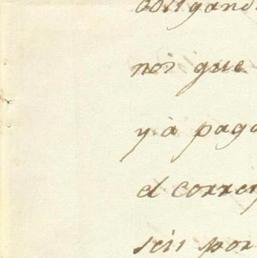 obligand
nos que
y à paga
el corresp
seis por